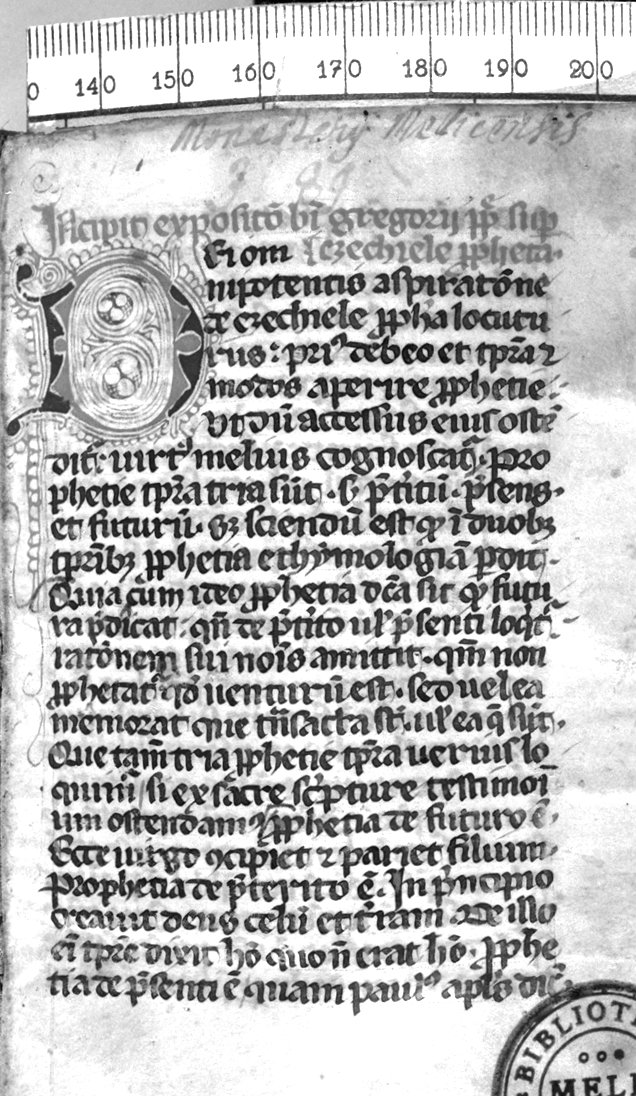 0 140 150 160 170 180 190 200
Monasterij Mellicensis
Incipit expositō bī gregorij pp̄ sup
Ei om ezechiele ꝓphetā.
nipotentis aspiratōne
de ezechiele ꝓpha locutu
rus: pri9 debeo et tp̄ra ⁊
modos aperire ꝓphetie.
Vt dū accessus eius oste
dit᷑: uirt9 melius cognoscat᷑. Pro
phetie tp̄ra tria sūt. s. p̄t̄itū. p̄sens.
et futurū. Sꝫ sciendū est qͥ ī duobꝫ
tp̄ribꝫ ꝓphetia ethymologiā pdit.
Quia cum ideo ꝓphetia dc̄a sit qͥ futu
ra p̄dicat: qn̄ de p̄t̄ito ul̓ p̄senti loqͥt᷑
ratōnem sui nois amittit. qm̄ non
ꝓphetat qd̓ uenturū est. sed uel ea
memorat que tn̄sacta st̄. ul̓ ea q̄ sūt.
Que tam̄ tria ꝓphetie tp̄ra uerius lo
quim᷑ si ex sacre sc̓pture testimoī
um ostendam9 ꝓphetia de futuro ē.
Ecce uirgo ꝯcipiet ⁊ pariet filium.
Prophetia de p̄terito ē. In p̓ncipio
creauit deus celū et t̓ram. De illo
eī tp̄re dixit hō quo n̄ erat hō. ꝓphe
tia de p̄senti ē quam paul9 apl̓s dic̄
BIBLIOT
MEL